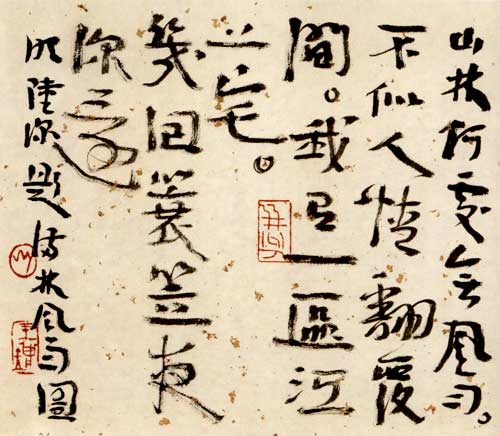 山林何處無風雨。
不似人情翻覆
間。我有一區江
上宅。
幾回蓑笠夜
深還
明陸深題林風雨圖